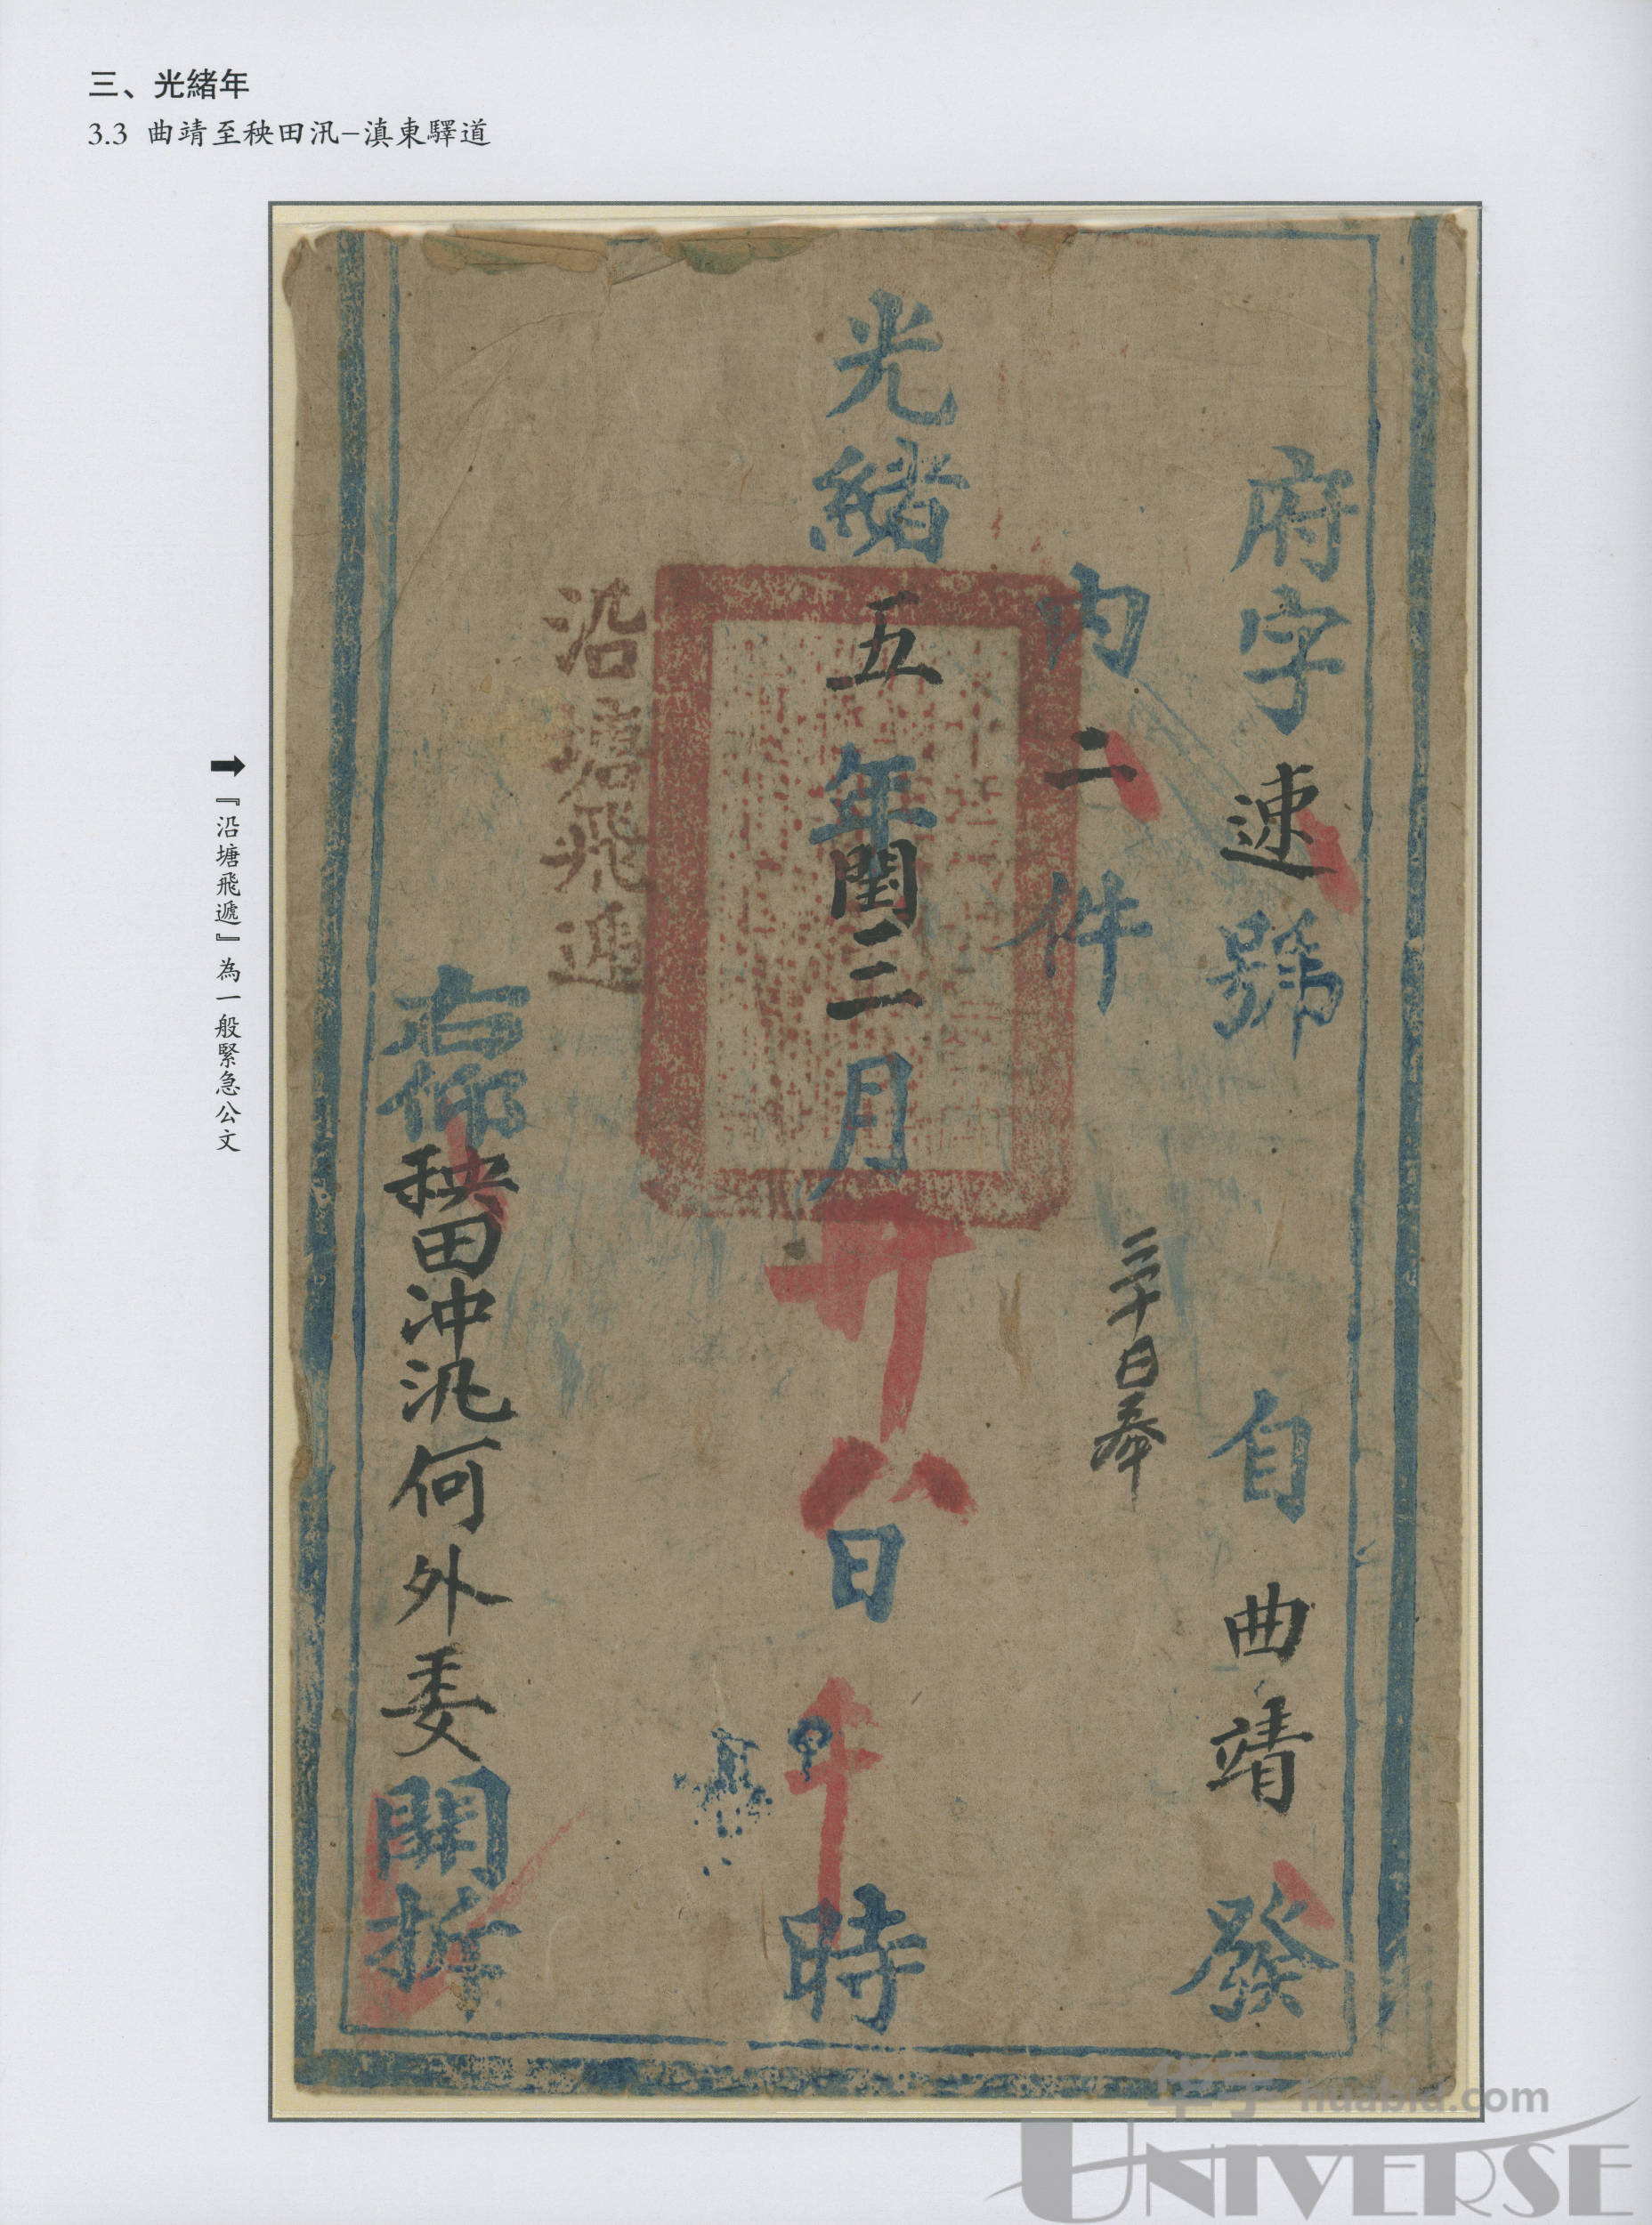 三、光緒年
3.3 曲靖至秧田汛–滇東驛道
府字速號 自曲靖發
内二件
三十日奉
光緒五年閏三月廿八日午時
沿塘飛遞
右仰秧田冲汛何外委開拆
➡『沿塘飛遞』為一般緊急公文
华宇 huabid.com
UNIVERSE